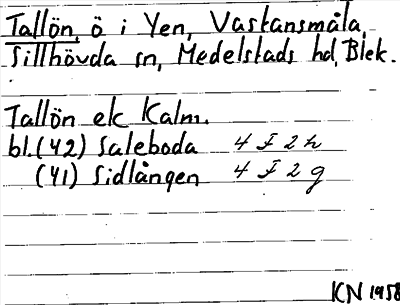 Tallön, ö i Yen, Vastansmåla,
Sillhövda sn, Medelstads hd, Blek.
Tallön ek Kalm.
bl.(42) Saleboda 4 F 2 h
(41) Sidlången 4 F 2 g
KN 1958